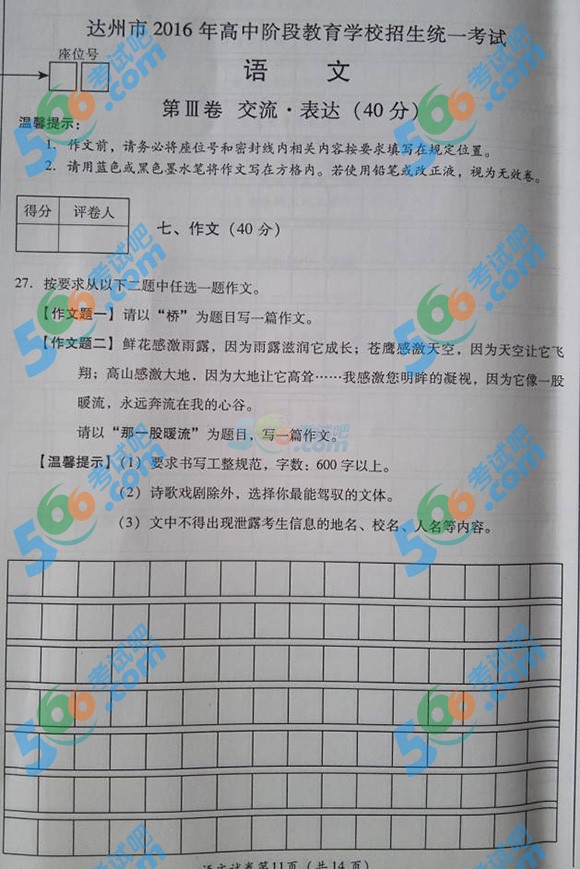 达州市2016年高中阶段教育学校招生统一考试
座位号
语 文
第Ⅲ卷 交流·表达(40分)
温馨提示:
1. 作文前,请务必将座位号和密封线内相关内容按要求填写在规定位置。
2. 请用蓝色或黑色墨水笔将作文写在方格内。若使用铅笔或改正液,视为无效卷。
得分 评卷人
七、作文(40分)
27. 按要求从以下二题中任选一题作文。
【作文题一】请以“桥”为题目写一篇作文。
【作文题二】鲜花感激雨露,因为雨露滋润它成长;苍鹰感激天空,因为天空让它飞
翔;高山感激大地,因为大地让它高耸……我感激您明眸的凝视,因为它像一股
暖流,永远奔流在我的心谷。
请以“那一股暖流”为题目,写一篇作文。
【温馨提示】(1)要求书写工整规范,字数:600字以上。
(2)诗歌戏剧除外,选择你最能驾驭的文体。
(3)文中不得出现泄露考生信息的地名、校名、人名等内容。
语文试卷第11页(共14页)
566考试吧.com
566考试吧.com
566考试吧.com
566考试吧.com
566考试吧.com
566考试吧.com
566考试吧.com
566考试吧.com
566考试吧.com